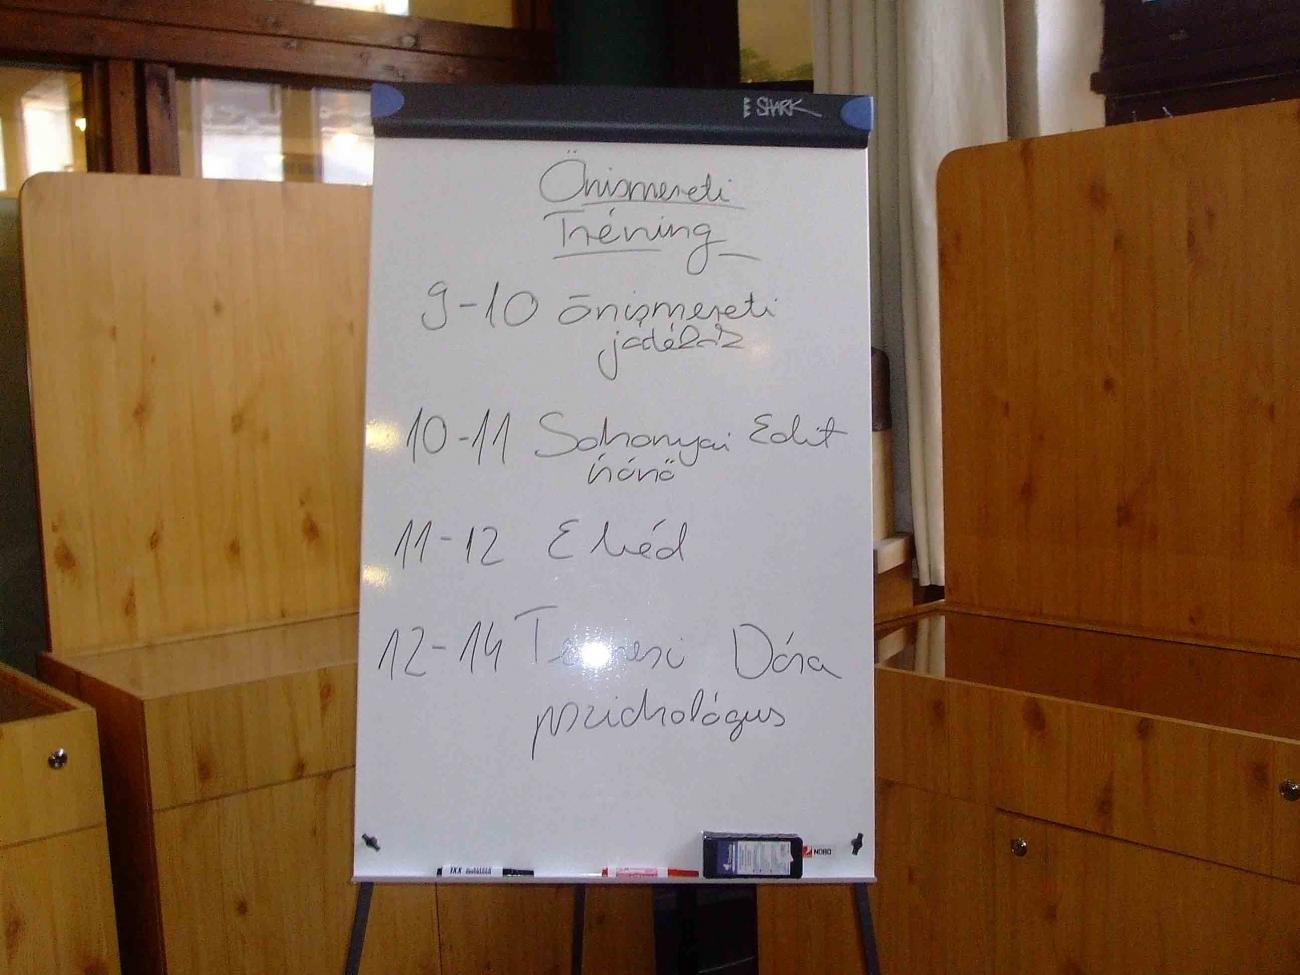 SHARK
Önismereti
Tréning
9-10 önismereti
játékház
10-11 Sohonyai Edit
írónő
11-12 Ebéd
12-14 Temesi Dóra
pszichológus
NOBO